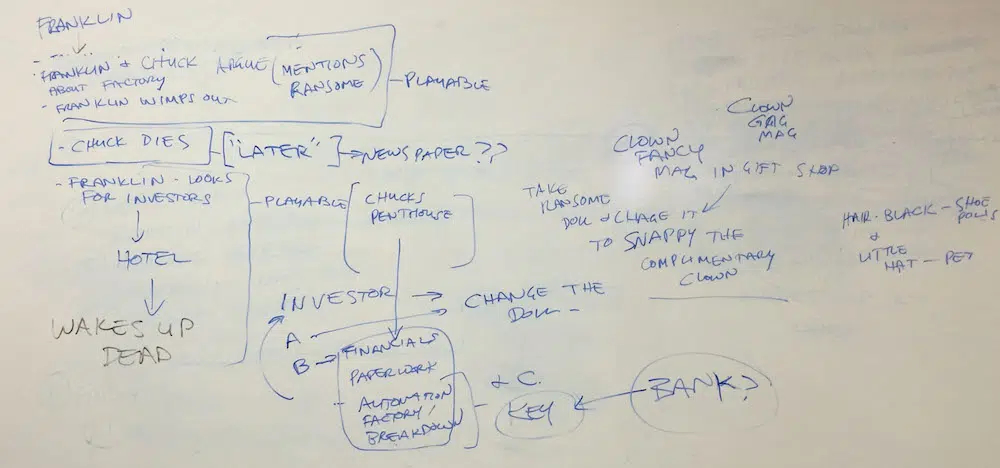 FRANKLIN
- FRANKLIN & CHUCK ARGUE (MENTIONS
ABOUT FACTORY RANSOME)
- FRANKLIN WIMPS OUT
- PLAYABLE
- CHUCK DIES - ["LATER"] → NEWSPAPER??
- FRANKLIN - LOOKS
FOR INVESTORS
- PLAYABLE
HOTEL
WAKES UP
DEAD
CHUCKS
PENTHOUSE
INVESTOR → CHANGE THE
A
B → FINANCIALS
PAPERWORK
- AUTOMATION
FACTORY/
BREAKDOWN
& C.
KEY
BANK?
CLOWN
GAG
MAG
CLOWN
FANCY
MAG IN GIFT SHOP
TAKE
RANSOME
DOLL & CHAGE IT
TO SNAPPY THE
COMPLIMENTARY
CLOWN
HAIR - BLACK - SHOE
POLIS
&
LITTLE
HAT - PET